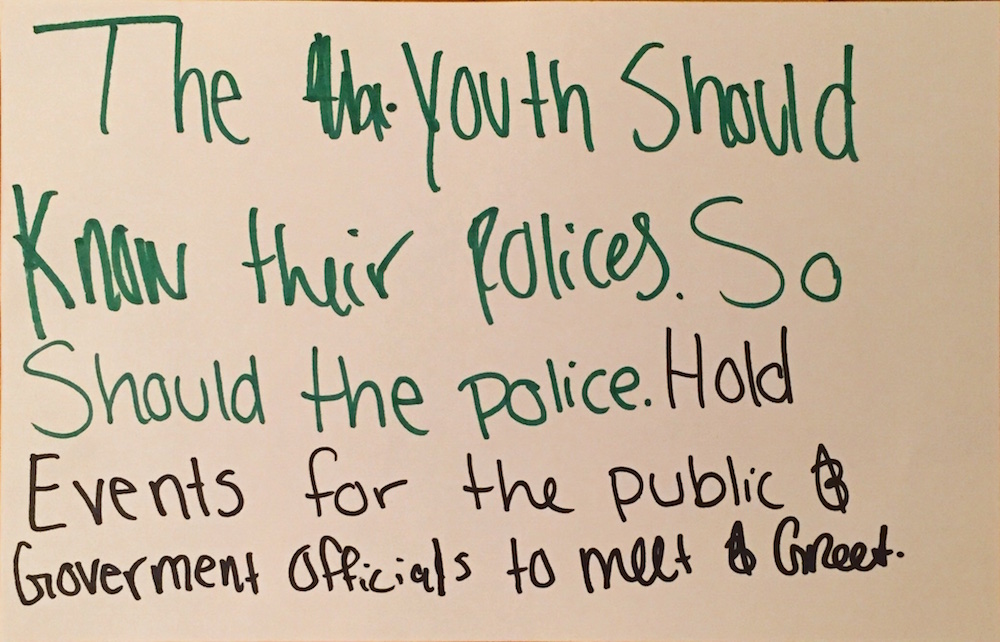 The Youth Should
Know their Polices. So
Should the police. Hold
Events for the public &
Goverment Officials to meet & Greet.